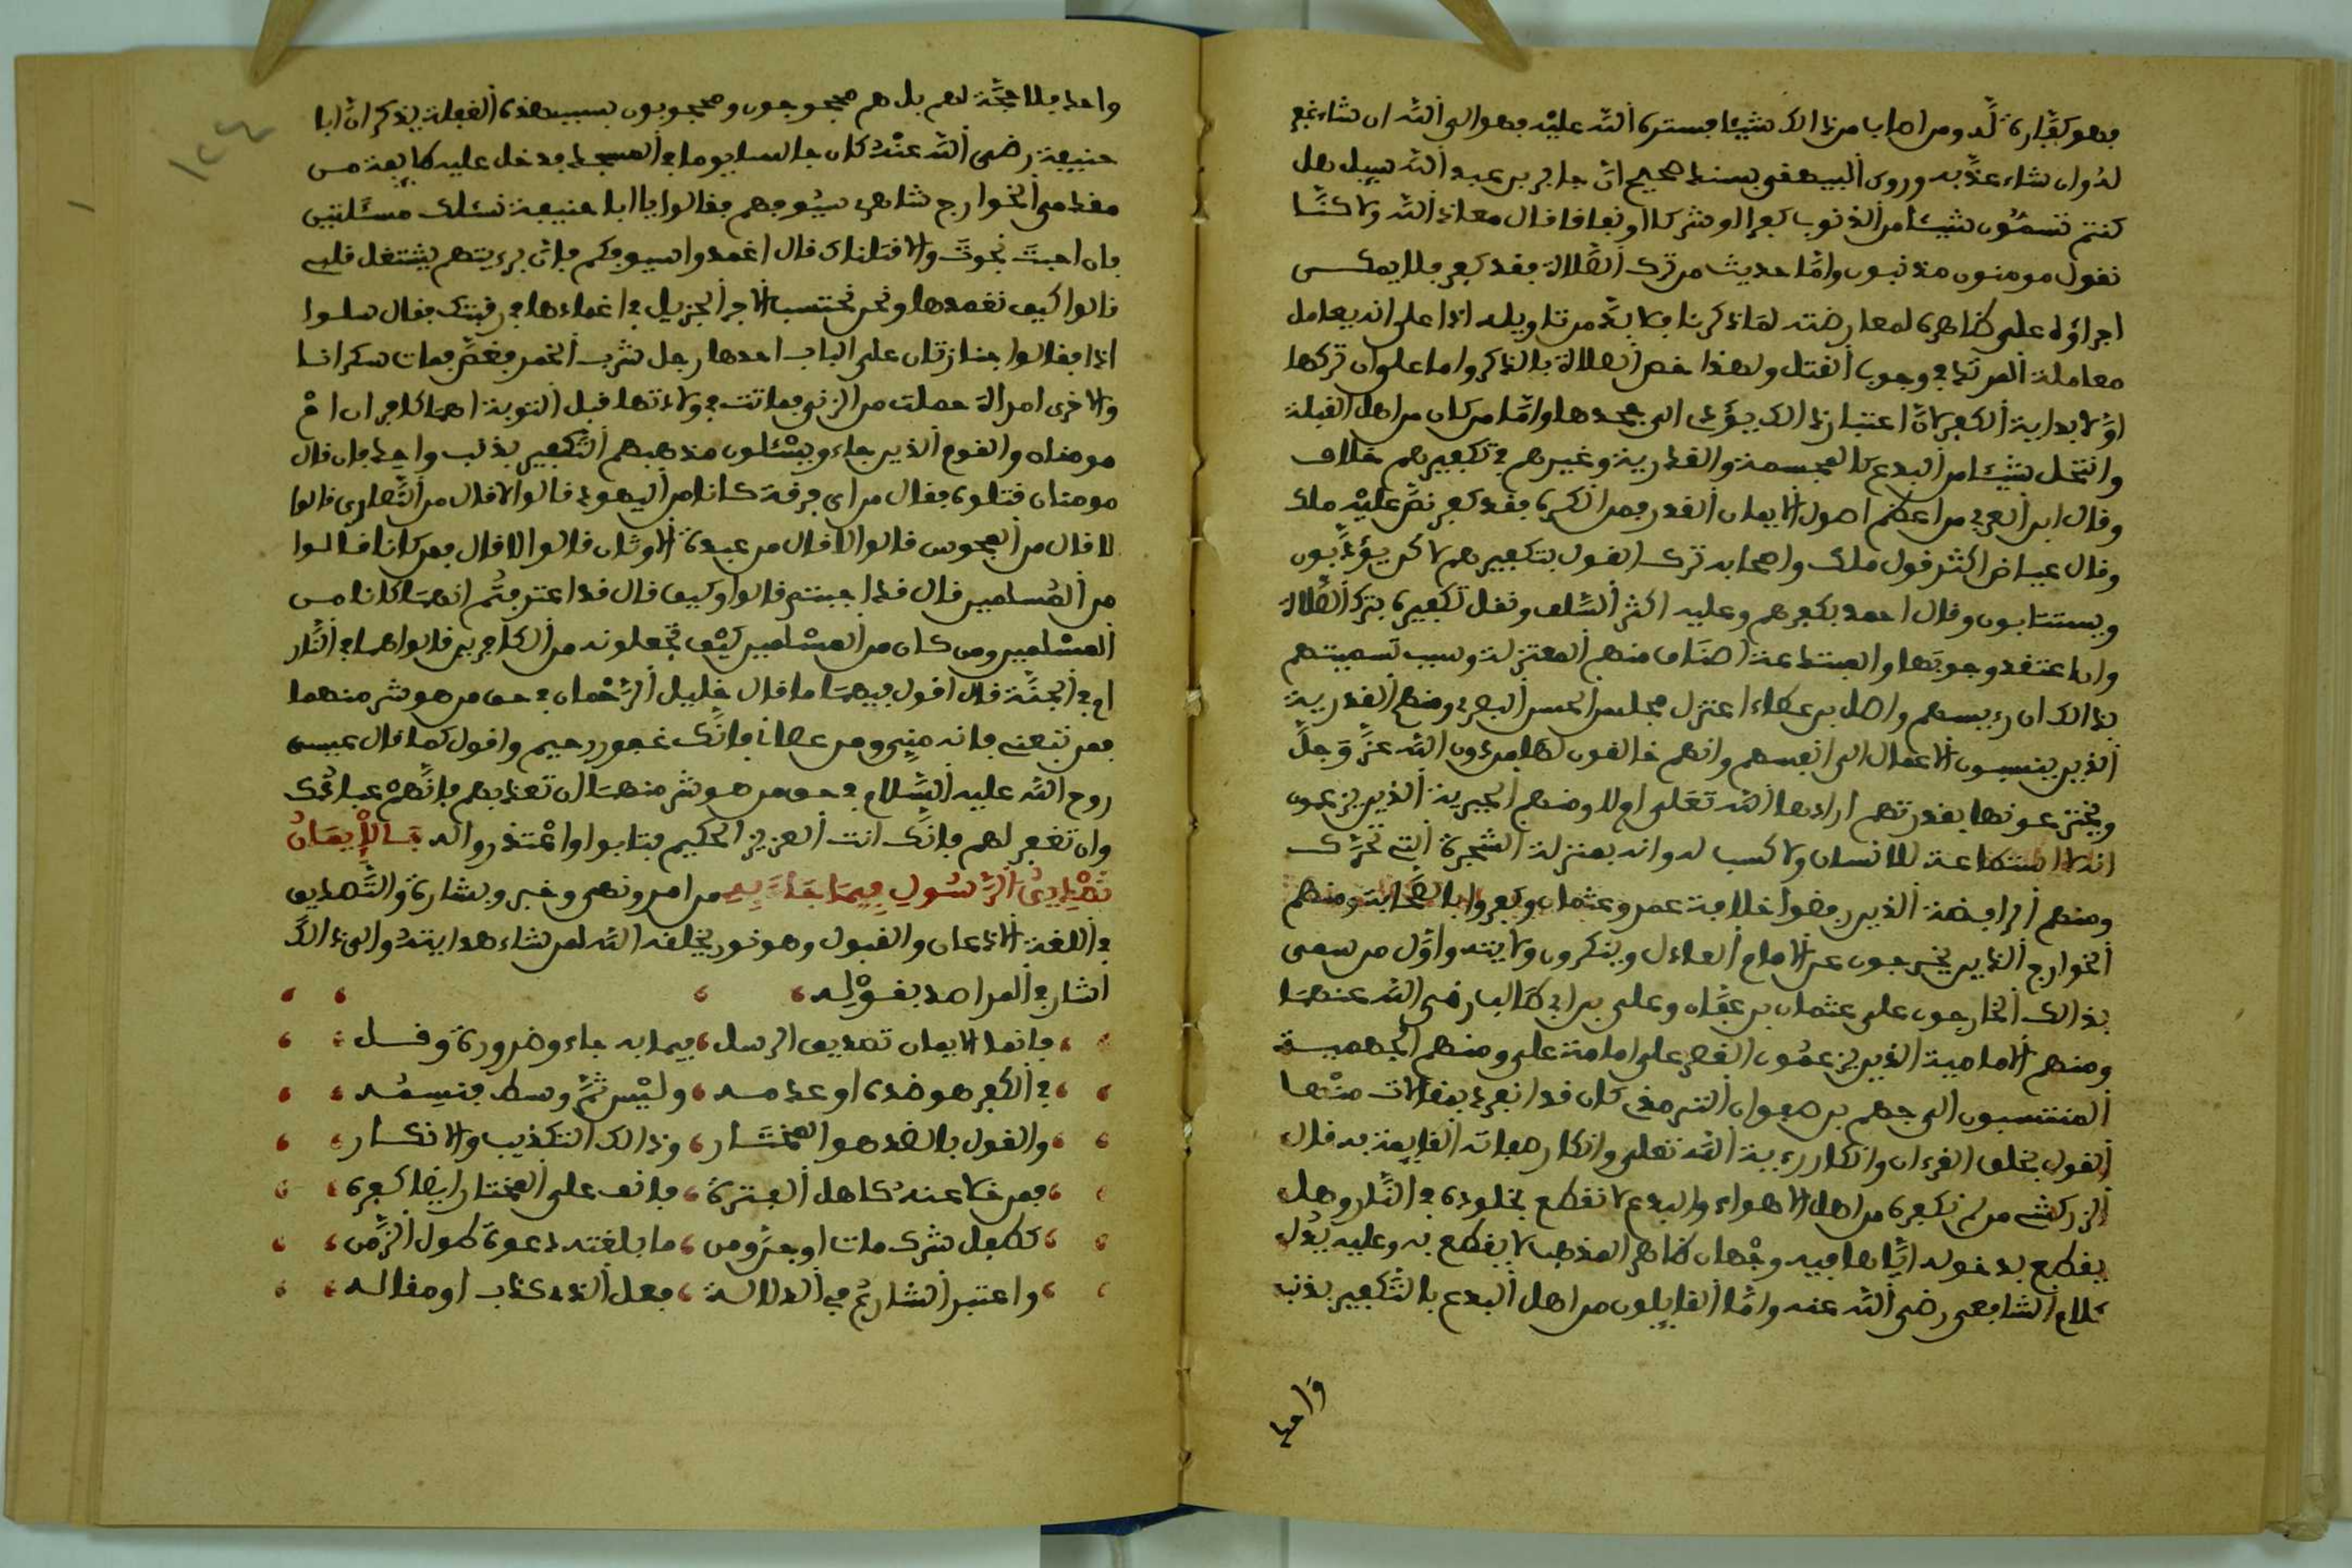 فهو كفارة له ومن اصاب من ذالك شيئا فستره الله عليه فهو الى الله ان شاء غفر
له وان شاء عذبه وروى البيهقي بسند صحيح ان جابر بن عبد الله سيل هل
كنتم تسمون شيئا من الذنوب كفرا او شركا او نفاقا قال معاذ الله ولاكنا
نقول مومنون مذنبون واما حديث من ترك الصلاة فقد كفر فلا يمكن
اجراؤه على ظاهره لمعارضته لما ذكرنا فلا بد من تاويله اذا على انه يعامل
معاملة المرتد في وجوب القتل ولهذا خص الصلاة بالذكر واما على ان تركها
اولا بداية الكفر لان اعتبار ذالك يؤدي الى جحدها واما من كان من اهل القبلة
وانتحل شيئا من البدع كالمجسمة والقدرية وغيرهم في تكفيرهم خلاف
وقال ابن العربي من اعظم اصول الايمان القدر فمن انكره فقد كفر نص عليه ملك
وقال عياض اكثر قول ملك واصحابه ترك القول بتكفيرهم لاكن يؤدبون
ويستتابون وقال احمد بكفرهم وعليه اكثر السلف ونقل تكفيره بترك الصلاة
وان اعتقد وجوبها والمبتدعة اصناف منهم المعتزلة وسبب تسميتهم
بذالك ان رءيسهم واصل بن عطاء اعتزل مجلس الحسن البصري ومنهم القدرية
الذين ينسبون الاعمال الى انفسهم وانهم خالقون لها من دون الله عز وجل
ويخترعونها بقدرتهم ارادها الله تعلى اولا ومنهم الجبرية الذين يزعمون
انه لا استطاعة للانسان ولا كسب له وانه بمنزلة الشجرة التي تحرك
ومنهم الرافضة الذين رفضوا خلافة عمر وعثمان وكفروا الصحابة ومنهم
الخوارج الذين يخرجون عن الامام العادل وينكرون ولايته واول من سمي
بذالك الخارجون على عثمان بن عفان وعلي بن ابي طالب رضي الله عنهما
ومنهم الامامية الذين يزعمون النص على امامة علي ومنهم الجهمية
المنتسبون الى جهم بن صفوان الترمذي كان قد انفرد بمقالات منها
القول بخلق القرءان وانكار رءية الله تعلى وانكار صفاته القايمة به قال
الزركشي من لم نكفره من اهل الاهواء والبدع لا نقطع بخلوده في النار وهل
يقطع بدخوله اياها فيه وجهان ظاهر المذهب لا يقطع به وعليه يدل
كلام الشافعي رضي الله عنه واما القايلون من اهل البدع بالتكفير بذنب
واحد
١٢٤
واحد فلا حجة لهم بل هم محجوجون ومحجوبون بسبب هذه الفعلة يذكر ان ابا
حنيفة رضي الله عنه كان جالسا يوما في المسجد فدخل عليه طايفة من
مقدمي الخوارج شاهري سيوفهم فقالوا يا ابا حنيفة نسئلك مسئلتين
فان اجبت نجوت والا قتلناك قال اغمدوا سيوفكم فان برءيتهم يشتغل قلبي
قالوا كيف نغمدها ونحن نحتسب الاجر الجزيل في اغمادها في رقبتك فقال سلوا
اذا فقالوا جنازتان على الباب احدها رجل شرب الخمر فغص فمات سكرانا
والاخرى امراة حملت من الزنى فماتت في ولادتها قبل التوبة اهما كافران ام
مومناه والقوم الذين جاءو يسئلون مذهبهم التكفير بذنب واحد فان قال
مومنان قتلوه فقال من اي فرقة كانا من اليهود قالوا لا قال من النصارى قالوا
لا قال من المجوس قالوا لا قال من عبدة الاوثان قالوا لا قال فمن كانا قالوا
من المسلمين قال قد اجبتم قالوا وكيف قال قد اعترفتم انهما كانا من
المسلمين ومن كان من المسلمين كيف تجعلونه من الكافرين قالوا هما في النار
ام في الجنة قال اقول فيهما ما قال خليل الرحمان في حق من هو شر منهما
فمن تبعني فانه مني ومن عصاني فانك غفور رحيم واقول كما قال عيسى
روح الله عليه السلام في حق من هو شر منهما ان تعذبهم فانهم عبادك
وان تغفر لهم فانك انت العزيز الحكيم فتابوا واعتذروا له فالايمان
تصديق الرسول فيما جاء به من امر ونهي وخبر وبشارة والتصديق
في اللغة الاذعان والقبول وهو نور يخلقه الله لمن شاء هدايته والى ذالك
اشار في المراصد بقوله
فانما الايمان تصديق الرسل ، فيما به جاء وضرورة وقل
في الكفر هو ضده او عدمه ، وليس ثم وسط فنسمه
والقول بالضد هو المختار ، وذالك التكذيب والانكار
فمن خلا عنه كاهل الفترة ، فانف على المختار ايضا كفره
ككفل شرك مات او مجنون ، ما بلغته دعوة طول الزمن
واعتبر الشارع في الدلالة ، فعل الذي كذب او مقاله